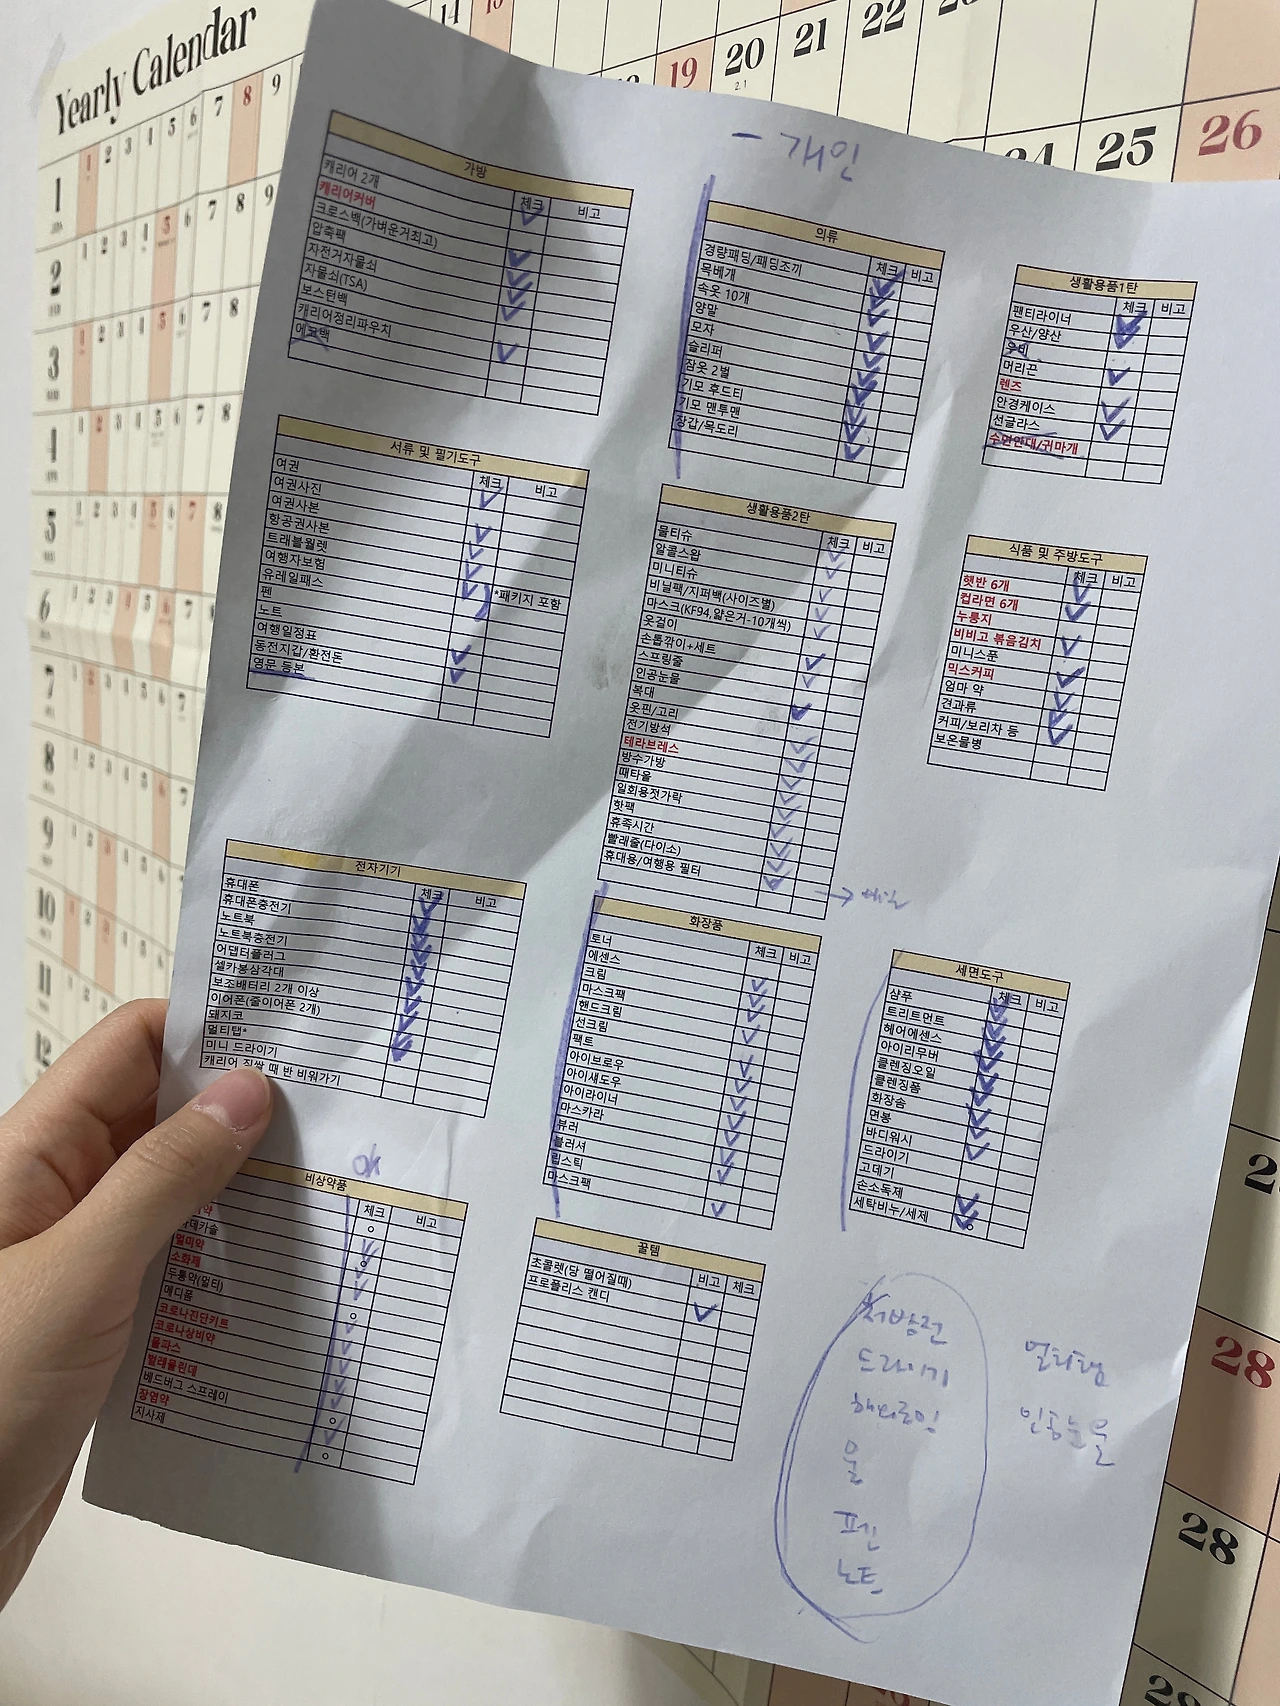 Yearly Calendar
- 개인
가방
체크 비고
캐리어 2개
캐리어커버
크로스백(가벼운거최고)
압축팩
자전거자물쇠
자물쇠(TSA)
보스턴백
캐리어정리파우치
에코백
의류
체크 비고
경량패딩/패딩조끼
목베개
속옷 10개
양말
모자
슬리퍼
잠옷 2벌
기모 후드티
기모 맨투맨
장갑/목도리
생활용품1탄
체크 비고
팬티라이너
우산/양산
우비
머리끈
렌즈
안경케이스
선글라스
수면안대/귀마개
서류 및 필기도구
체크 비고
여권
여권사진
여권사본
항공권사본
트래블월렛
여행자보험
유레일패스 *패키지 포함
펜
노트
여행일정표
동전지갑/환전돈
영문 등본
생활용품2탄
체크 비고
물티슈
알콜스왑
미니티슈
비닐팩/지퍼백(사이즈별)
마스크(KF94,얇은거-10개씩)
옷걸이
손톱깎이+세트
스프링줄
인공눈물
복대
옷핀/고리
전기방석
테라브레스
방수가방
때타올
일회용젓가락
핫팩
휴족시간
빨래줄(다이소)
휴대용/여행용 필터
식품 및 주방도구
체크 비고
햇반 6개
컵라면 6개
누룽지
비비고 볶음김치
미니스푼
믹스커피
엄마 약
견과류
커피/보리차 등
보온물병
전자기기
체크 비고
휴대폰
휴대폰충전기
노트북
노트북충전기
어댑터플러그
셀카봉삼각대
보조배터리 2개 이상
이어폰(줄이어폰 2개)
돼지코
멀티탭*
미니 드라이기
캐리어 짐쌀 때 반 비워가기
화장품
체크 비고
토너
에센스
크림
마스크팩
핸드크림
선크림
팩트
아이브로우
아이섀도우
아이라이너
마스카라
뷰러
블러셔
립스틱
마스크팩
세면도구
체크 비고
샴푸
트리트먼트
헤어에센스
아이리무버
클렌징오일
클렌징폼
화장솜
면봉
바디워시
드라이기
고데기
손소독제
세탁비누/세제
ok
비상약품
체크 비고
데카솔
멀미약
소화제
두통약(멀티)
메디폼
코로나진단키트
코로나상비약
물파스
벌레물린데
베드버그 스프레이
장염약
지사제
꿀템
비고 체크
초콜렛(당 떨어질때)
프로폴리스 캔디
처방전
드라이기
해피콜
물
펜
노트
멀티탭
인공눈물